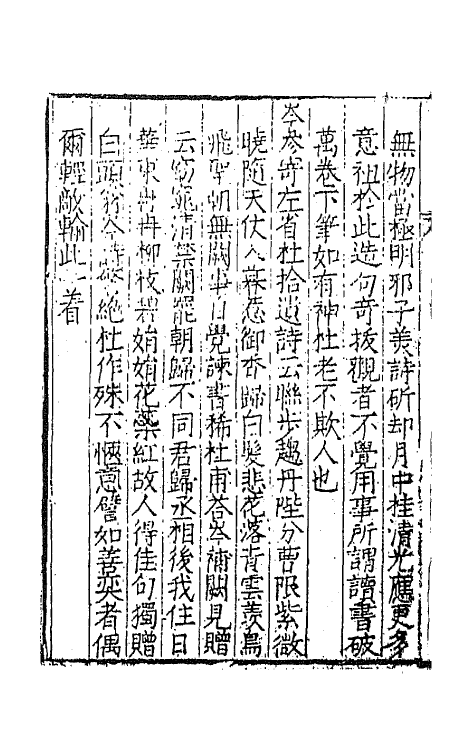 無物當極明邪子美詩斫却月中桂清光應更多
意祖於此造句奇拔觀者不覺用事所謂讀書破
萬卷下筆如有神杜老不欺人也
岑參寄左省杜拾遺詩云聯步趨丹陛分曹限紫微
曉隨天仗入暮惹御香歸白髮悲花落青雲羨鳥
飛聖朝無闕事自覺諫書稀杜甫荅岑補闕見贈
云窈窕清禁闥罷朝歸不同君歸丞相後我住日
華東冉冉柳枝碧娟娟花蘂紅故人得佳句獨贈
白頭翁岑詩警絶杜作殊不愜意譬如善奕者偶
爾輕敵輸此一着